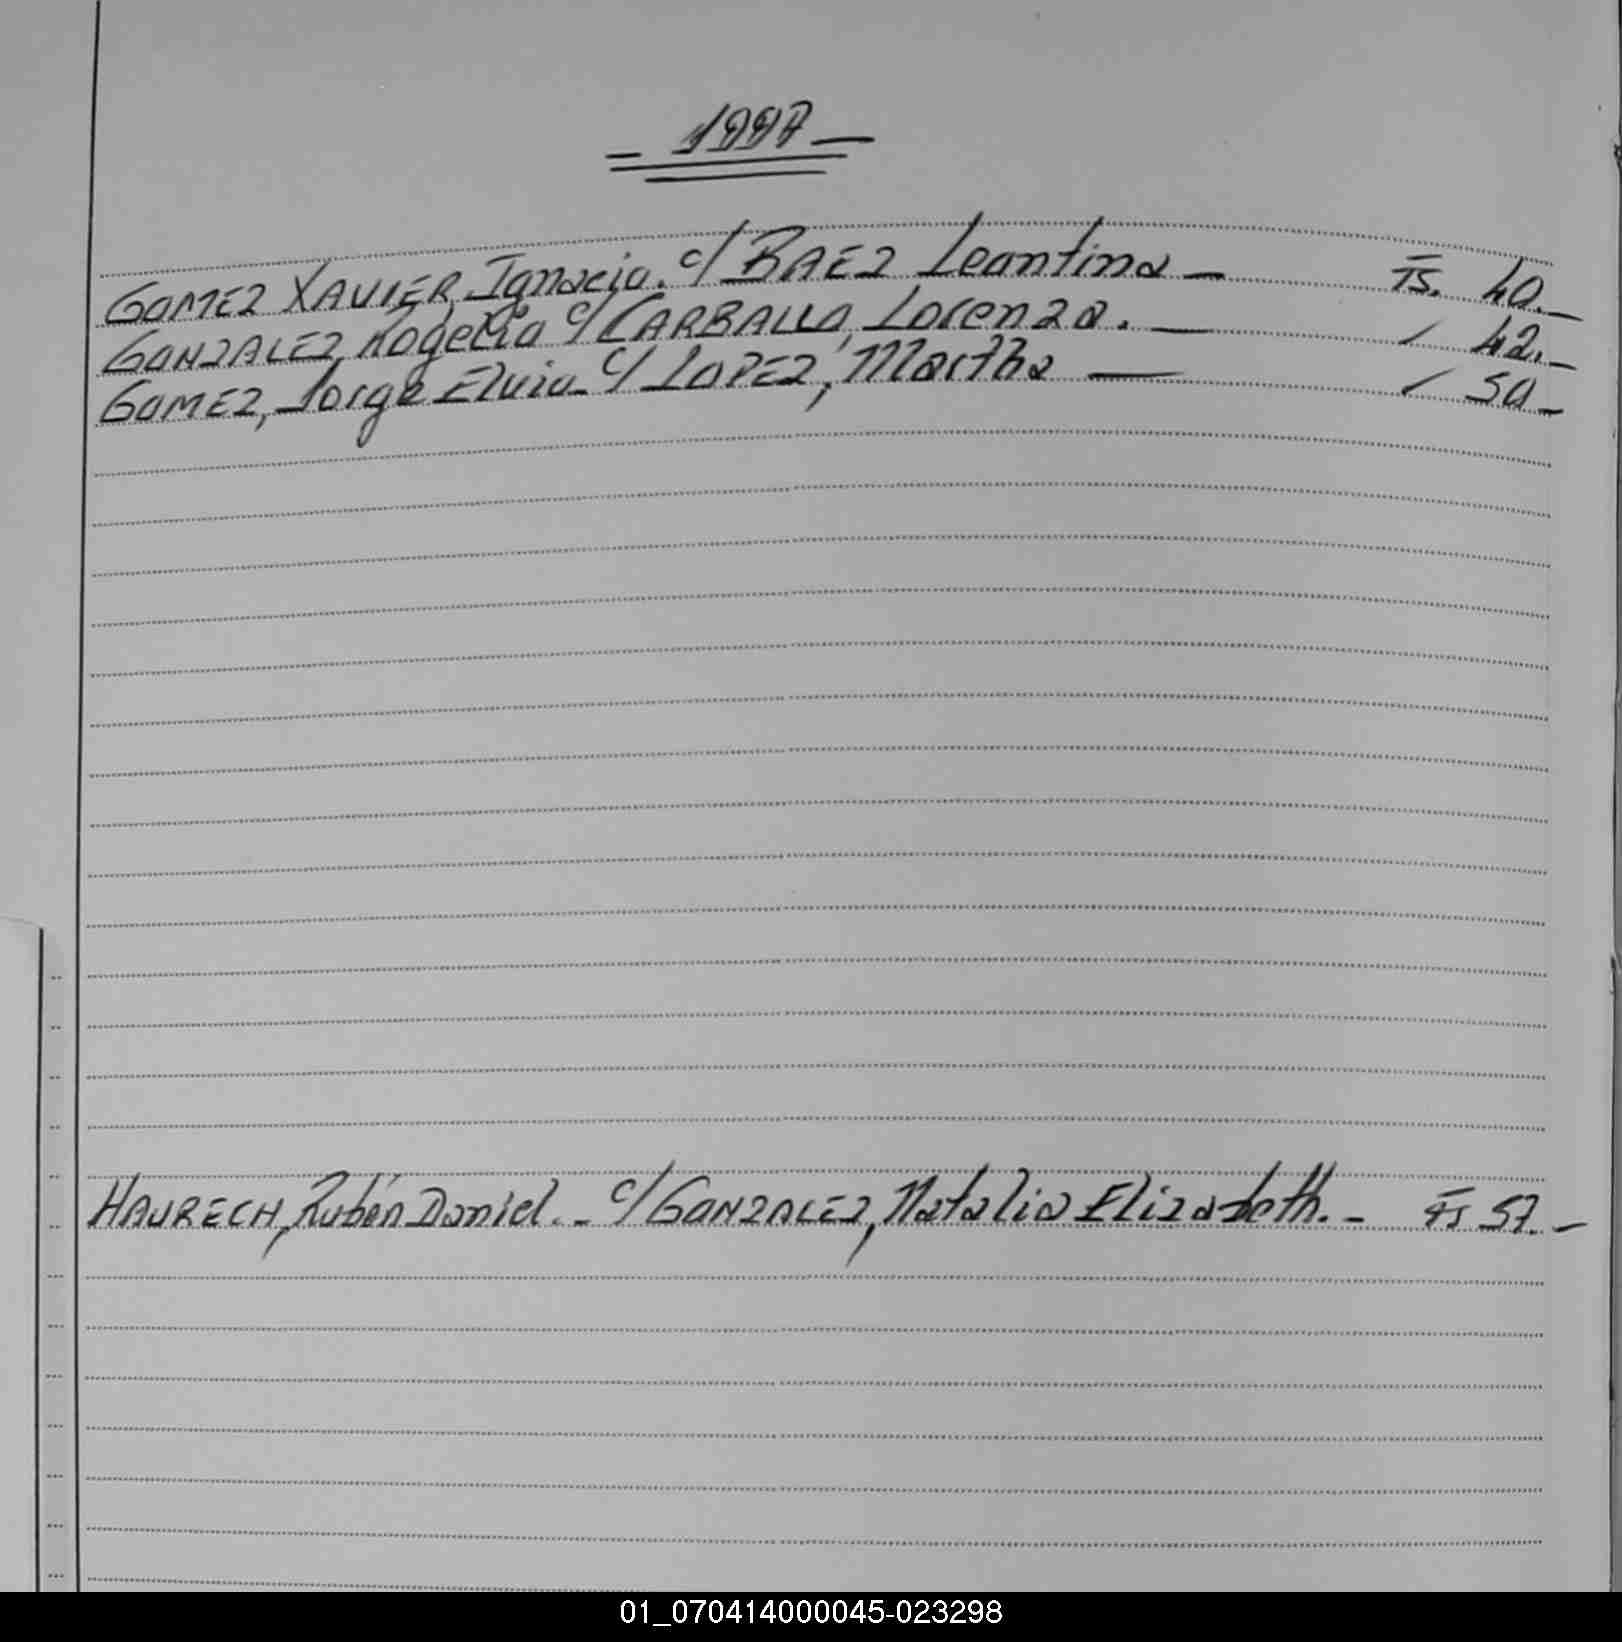 - 1997 -
GOMEZ XAVIER, Ignacio. c/ BAEZ Leontina - Fs. 40.-
GONZALEZ, Rogelio c/ CARBALLO, Lorenza. - / 42.-
GOMEZ, Jorge Elvio c/ LOPEZ, Martha - / 50-
HAURECH, Rubén Daniel. - c/ GONZALEZ, Natalia Elizabeth. - Fs 57.-
01_070414000045-023298